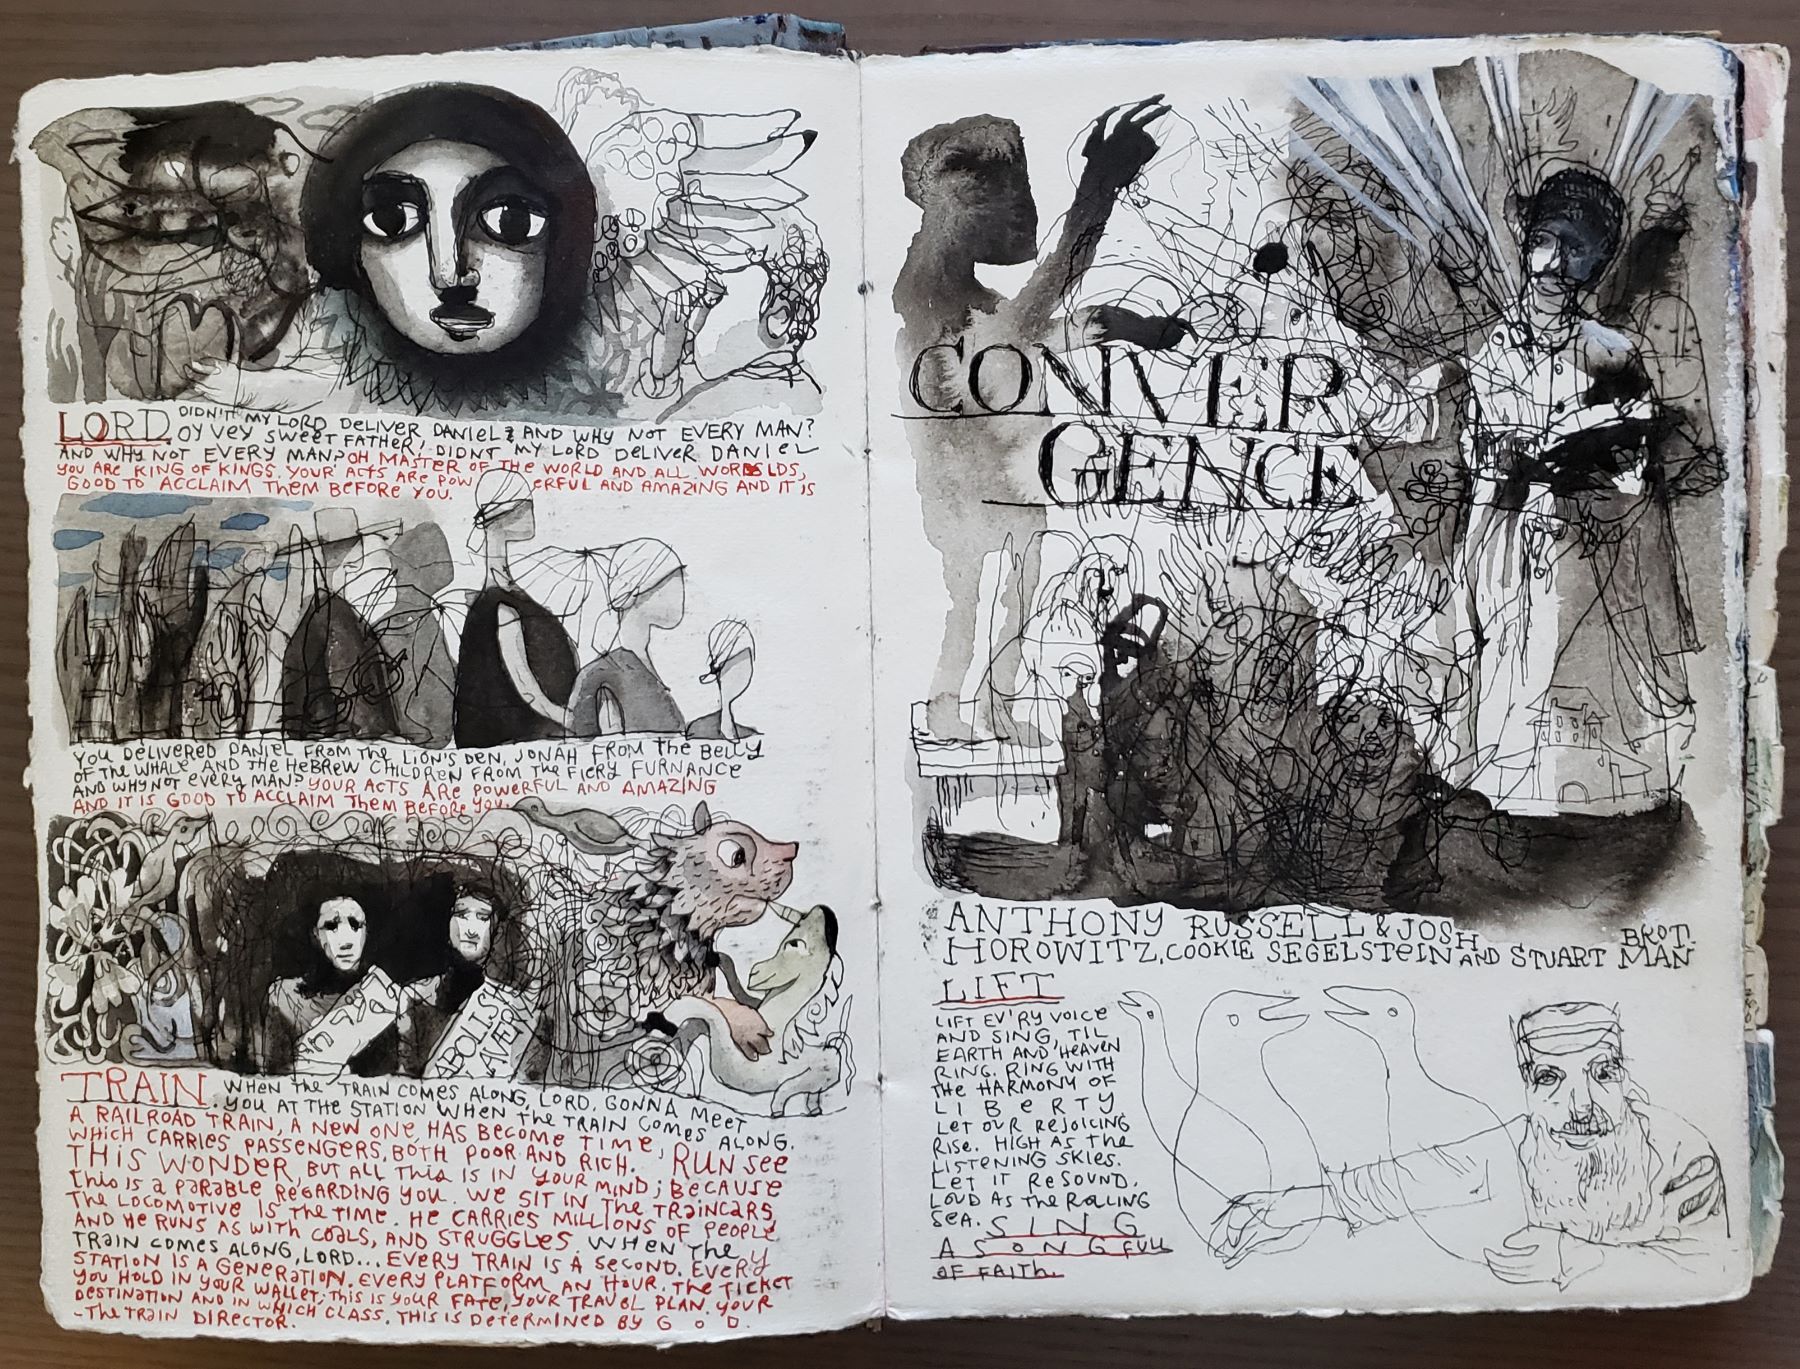 LORD. DIDN'T MY LORD DELIVER DANIEL & AND WHY NOT EVERY MAN?
OY VEY SWEET FATHER, DIDNT MY LORD DELIVER DANIEL
AND WHY NOT EVERY MAN? OH MASTER OF THE WORLD AND ALL WORLDS,
YOU ARE KING OF KINGS. YOUR ACTS ARE POWERFUL AND AMAZING AND IT IS
GOOD TO ACCLAIM THEM BEFORE YOU.
YOU DELIVERED DANIEL FROM THE LION'S DEN, JONAH FROM THE BELLY
OF THE WHALE AND THE HEBREW CHILDREN FROM THE FIERY FURNANCE
AND WHY NOT EVERY MAN? YOUR ACTS ARE POWERFUL AND AMAZING
AND IT IS GOOD TO ACCLAIM THEM BEFORE YOU.
ABOLISH
SLAVERY
TRAIN. WHEN THE TRAIN COMES ALONG, LORD, GONNA MEET
YOU AT THE STATION WHEN THE TRAIN COMES ALONG.
A RAILROAD TRAIN, A NEW ONE, HAS BECOME TIME,
WHICH CARRIES PASSENGERS, BOTH POOR AND RICH. RUN SEE
THIS WONDER, BUT ALL THIS IS IN YOUR MIND; BECAUSE
THIS IS A PARABLE REGARDING YOU. WE SIT IN THE TRAINCARS
THE LOCOMOTIVE IS THE TIME. HE CARRIES MILLIONS OF PEOPLE
AND HE RUNS AS WITH COALS, AND STRUGGLES. WHEN THE
TRAIN COMES ALONG, LORD... EVERY TRAIN IS A SECOND. EVERY
STATION IS A GENERATION. EVERY PLATFORM AN HOUR. THE TICKET
YOU HOLD IN YOUR WALLET; THIS IS YOUR FATE, YOUR TRAVEL PLAN. YOUR
DESTINATION AND IN WHICH CLASS. THIS IS DETERMINED BY GOD.
-THE TRAIN DIRECTOR.
CONVER
GENCE
ANTHONY RUSSELL & JOSH
HOROWITZ, COOKIE SEGELSTEIN AND STUART BROTMAN
LIFT
LIFT EV'RY VOICE
AND SING, TIL
EARTH AND HEAVEN
RING. RING WITH
THE HARMONY OF
LIBERTY
LET OUR REJOICING
RISE. HIGH AS THE
LISTENING SKIES.
LET IT RESOUND.
LOUD AS THE ROLLING
SEA. SING
A SONG FULL
OF FAITH.